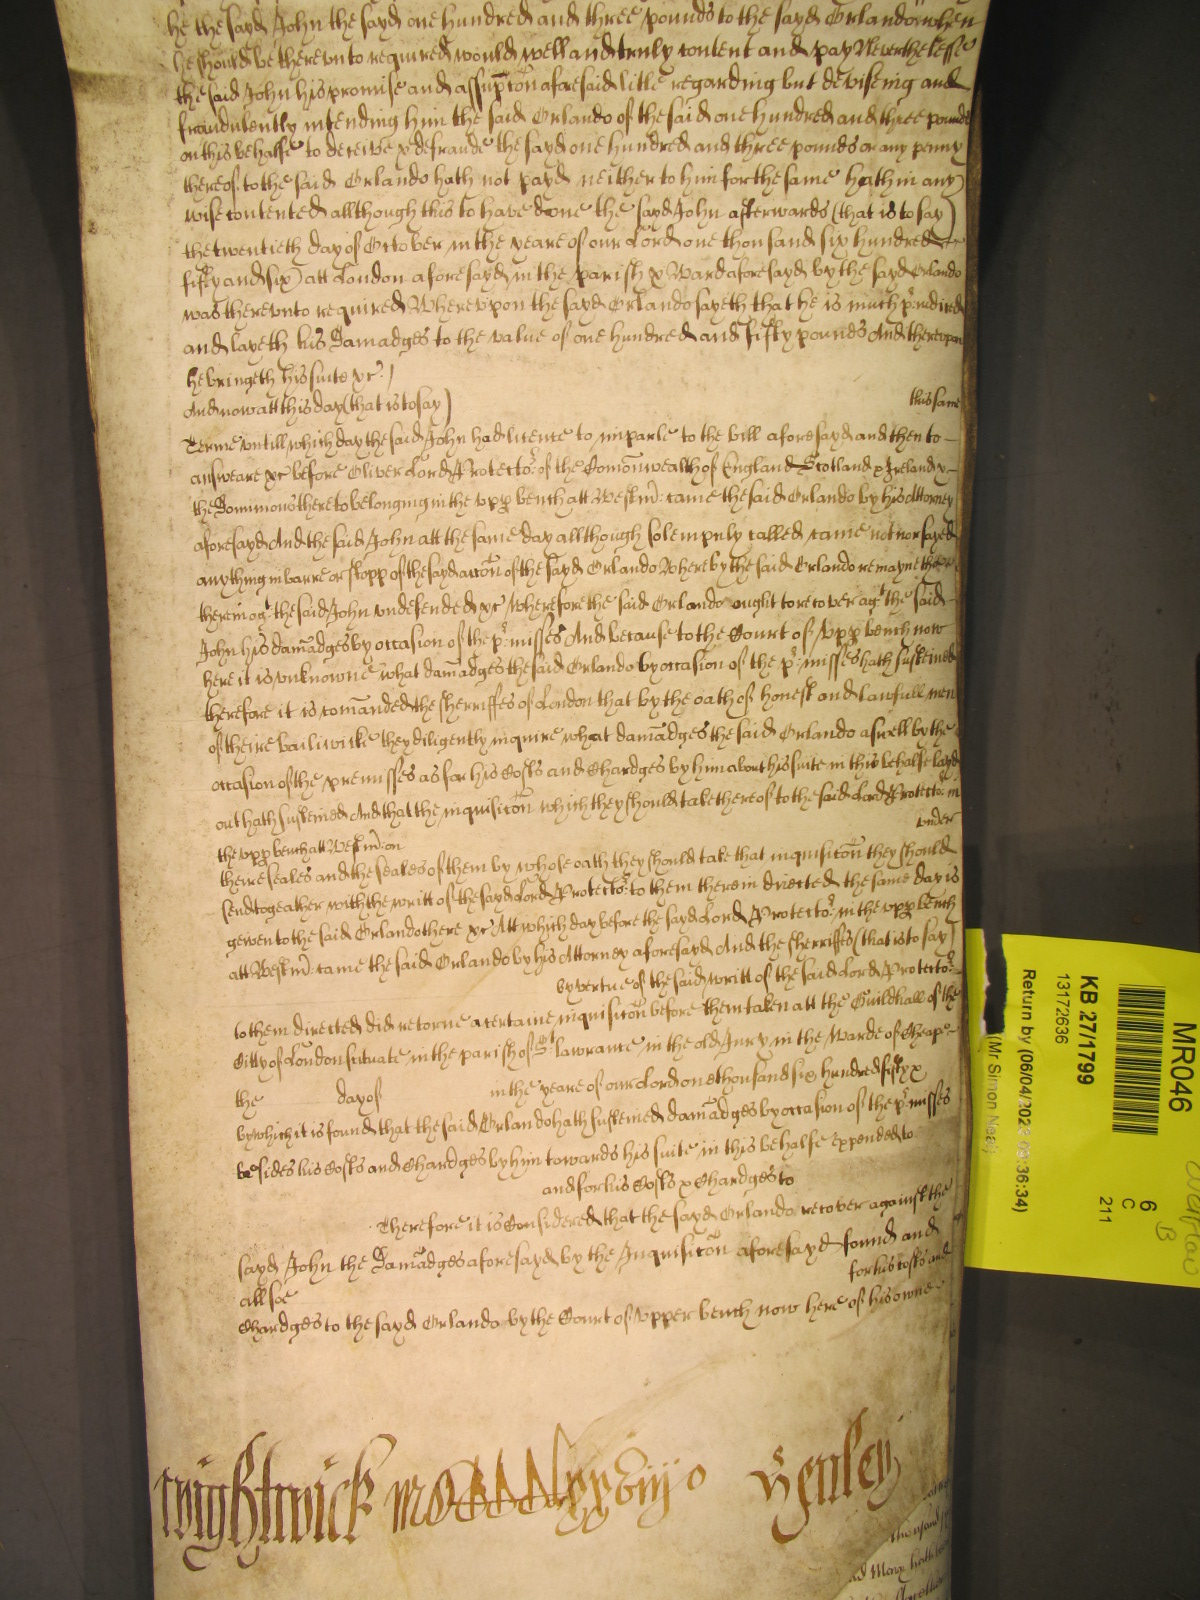 he the sayd John the sayd one hundred and three pounds to the sayd Orlando when
he should be therevnto required would well and truly content and pay Neverthelesse
the said John his promise and assupcõn aforesaid litle regarding but deviseing and
fraudulently intending him the said Orlando of the said one hundred and three pounds
on this behalfe to deceive & defraude the sayd one hundred and three pounds or any penny
thereof to the said Orlando hath not payd neither to him for the same hath in any
wise contented allthough this to have done the sayd John afterwards (that is to say)
the twentieth day of October in the yeare of our Lord one thousand six hundred
fifty and six) att London aforesayd in the parish & Ward aforesayd by the sayd Orlando
was therevnto required Wherevpon the sayd Orlando sayeth that he is much p:iudiced
and layeth his Damadges to the value of one hundred and fifty pounds And therevpon
he bringeth his suite &c.
And now att this day (that is to say) this same
Terme vntill which day the said John had licence to imparle to the bill aforesayd and then to
answeare &c before Oliver Lord Protector of the Comõnwealth of England Scotland & Ireland &
the Dominions thereto belonging in the vpp bench att Westmr: came the said Orlando by his Attorney
aforesayd And the said John att the same day allthough solempnly called came not nor sayed
any thing in barre or stopp of the sayd accõn of the sayd Orlando Whereby the said Orlando remayneth
therein agt the said John vndefended &c Wherefore the said Orlando ought to recover agt the said
John his damãdges by occasion of the p:misses And because to the Court of vpp bench now
here it is vnknowne what damãdges the said Orlando by occasion of the p:misses hath susteined
therefore it is comãnded the sherriffes of London that by the oath of honest and lawfull men
of theire bailiwicke they diligently inquire what damãdges the said Orlando aswell by the
occasion of the premisses as for his Costs and Chardges by him about his suite in this behalfe layd
out hath susteined And that the inquisicõn which they should take thereof to the said Lord Protector in
the vpp bench att Westmr: on under
theire seales and the seales of them by whose oath they should take that inquisicõn they should
send togeather with the writt of the sayd Lord Protector: to them therein directed the same day is
geven to the said Orlando there &c Att which day before the sayd Lord Protector: in the vpp bench
att Westmr: came the said Orlando by his Attorney aforesayd And the sherriffes (that is to say)
by vertue of the said writt of the said Lord Protector:
to them directed did retorne a certaine inquisicõn before them taken att the Guildhall of the
Citty of London scituate in the parish of St Lawrance in the old Jury in the Warde of Cheape
the day of in the yeare of our Lord one thousand six hundred fifty &
by which it is found that the said Orlando hath susteined damãdges by occasion of the p:misses
besides his Costs and Chardges by him towards his suite in this behalfe expended to
and for his Costs & Chardges to
Therefore it is Considered that the sayd Orlando recover against the
sayd John the Damãdges aforesayd by the Inquisicõn aforesayd found and
allsoe for his costs and
Chardges to the sayd Orlando by the Court of vpper bench now here of his owne
Wightwick Henley
MR046
6
C
B
211
KB 27/1799
13172636
Return by (06/04/2023 09:36:34)
(Mr Simon Neal)